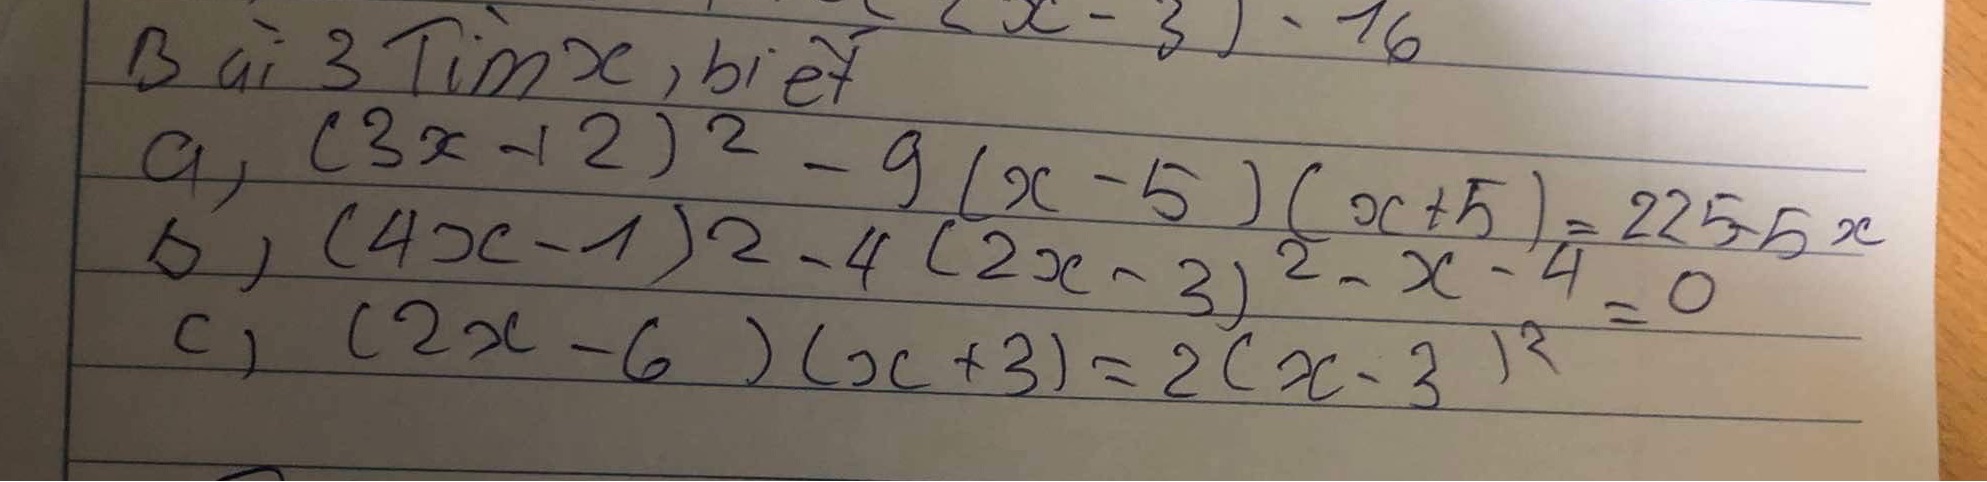 (x-3)-16
Bài 3 Tìm x, biết
a, (3x+2)² - 9(x-5)(x+5)=225-5x
b, (4x-1)2-4(2x-3)²-x-4=0
c, (2x-6)(x+3)=2(x-3)²